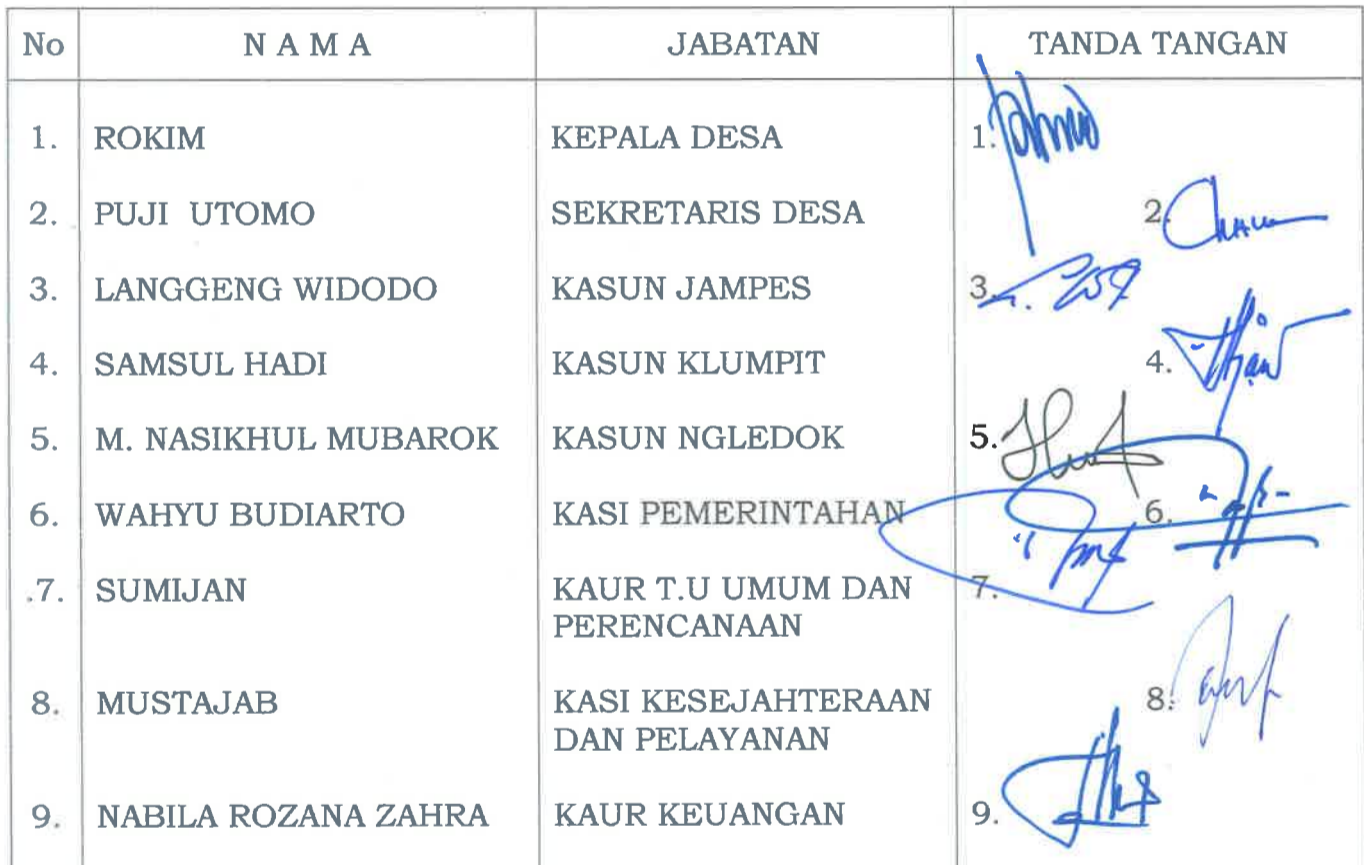 No N A M A JABATAN TANDA TANGAN
1. ROKIM KEPALA DESA 1.
2. PUJI UTOMO SEKRETARIS DESA 2.
3. LANGGENG WIDODO KASUN JAMPES 3.
4. SAMSUL HADI KASUN KLUMPIT 4.
5. M. NASIKHUL MUBAROK KASUN NGLEDOK 5.
6. WAHYU BUDIARTO KASI PEMERINTAHAN 6.
.7. SUMIJAN KAUR T.U UMUM DAN 7.
PERENCANAAN
8. MUSTAJAB KASI KESEJAHTERAAN 8.
DAN PELAYANAN
9. NABILA ROZANA ZAHRA KAUR KEUANGAN 9.